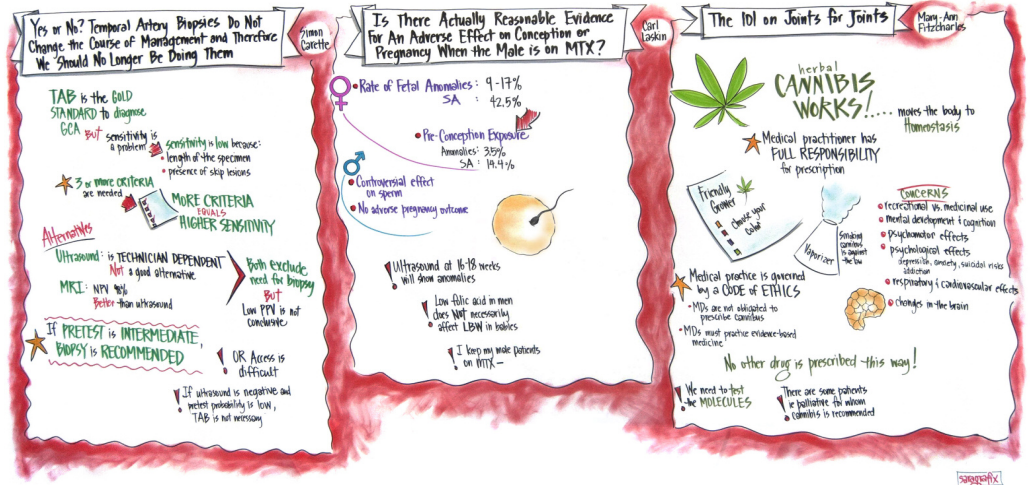 Yes or No? Temporal Artery Biopsies Do Not
Change the Course of Management and Therefore
We Should No Longer Be Doing Them
Simon
Carette
TAB is the GOLD
STANDARD to diagnose
GCA
BUT sensitivity is
a problem
sensitivity is low because:
length of the specimen
presence of skip lesions
3 or more CRITERIA
are needed
MORE CRITERIA
EQUALS
HIGHER SENSITIVITY
Alternatives
Ultrasound: is TECHNICIAN DEPENDENT
Not a good alternative
MRI: NPV 98%
Better than ultrasound
Both exclude
need for biopsy
BUT
Low PPV is not
conclusive
If PRETEST is INTERMEDIATE,
BIOPSY is RECOMMENDED
! OR Access is
difficult
! If ultrasound is negative and
pretest probability is low,
TAB is not necessary
Is There Actually Reasonable Evidence
For An Adverse Effect on Conception or
Pregnancy When the Male is on MTX?
Carl
Laskin
Rate of Fetal Anomalies: 9-17%
SA : 42.5%
Pre-Conception Exposure
Anomalies: 3.5%
SA: 14.4%
Controversial effect
on sperm
No adverse pregnancy outcome
! Ultrasound at 16-18 weeks
will show anomalies
! Low folic acid in men
does Not necessarily
affect LBW in babies
! I keep my male patients
on MTX –
The 101 on Joints for Joints
Mary-Ann
Fitzcharles
herbal
CANNIBIS
WORKS!.... moves the body to
Homestasis
Medical practitioner has
FULL RESPONSIBILITY
for prescription
Friendly
Grower
choose your
Color
Vaporizer
Smoking
cannibis
is against
the law
Concerns
recreational vs. medicinal use
mental development & cognition
psychomotor effects
psychological effects
depression, anxiety, suicidal risks
addiction
respiratory & cardiovascular effects
changes in the brain
Medical practice is governed
by a CODE of ETHICS
• MDs are not obligated to
prescribe cannibus
• MDs must practice evidence-based
medicine
No other drug is prescribed this way!
! We need to test
the MOLECULES
! There are some patients
ie palliative for whom
cannibis is recommended
saragrafix